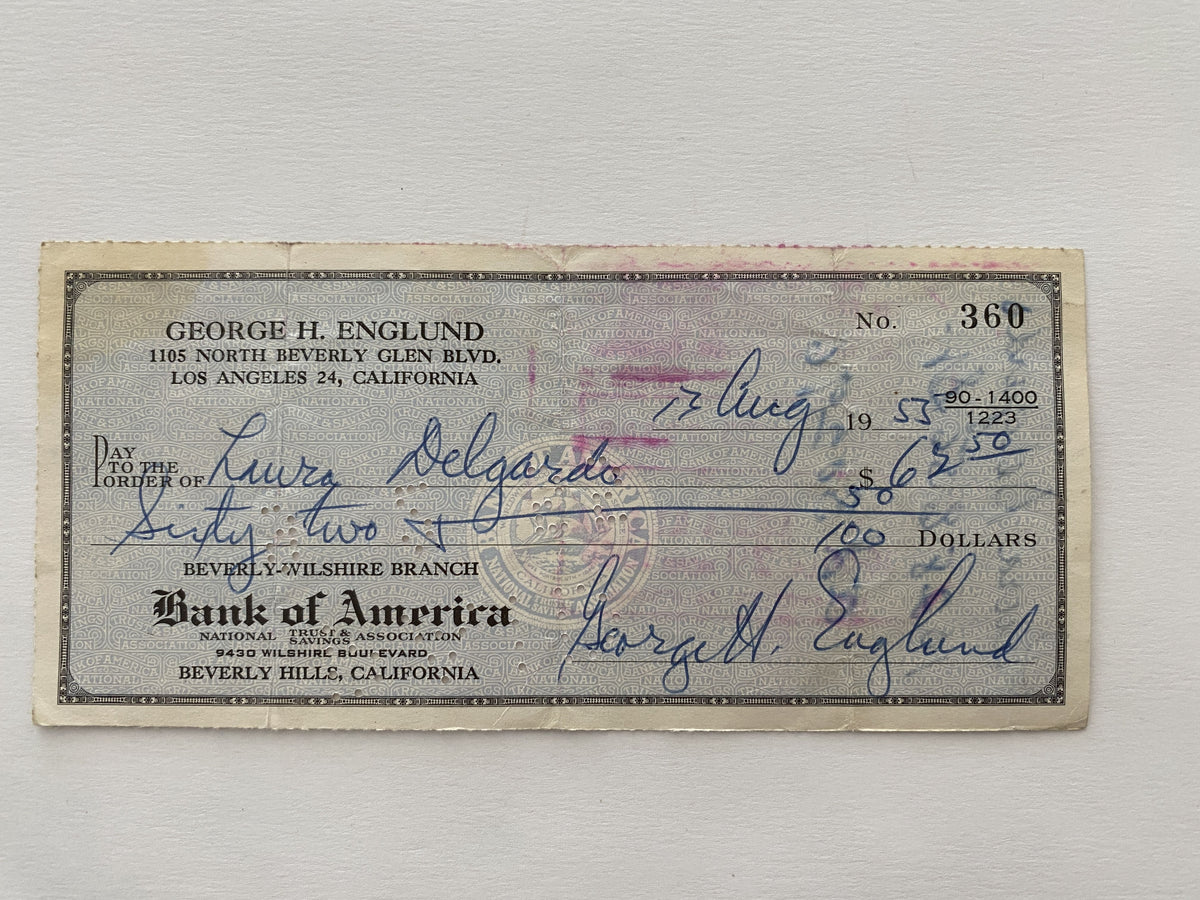 No. 360
GEORGE H. ENGLUND
1105 NORTH BEVERLY GLEN BLVD.
LOS ANGELES 24, CALIFORNIA
Aug 19 53
90-1400
1223
PAY TO THE ORDER OF Laura Delgardo $ 62 50
Sixty two & 50/100 DOLLARS
BEVERLY-WILSHIRE BRANCH
Bank of America
NATIONAL TRUST & SAVINGS ASSOCIATION
9430 WILSHIRE BOULEVARD
BEVERLY HILLS, CALIFORNIA
George H. Englund